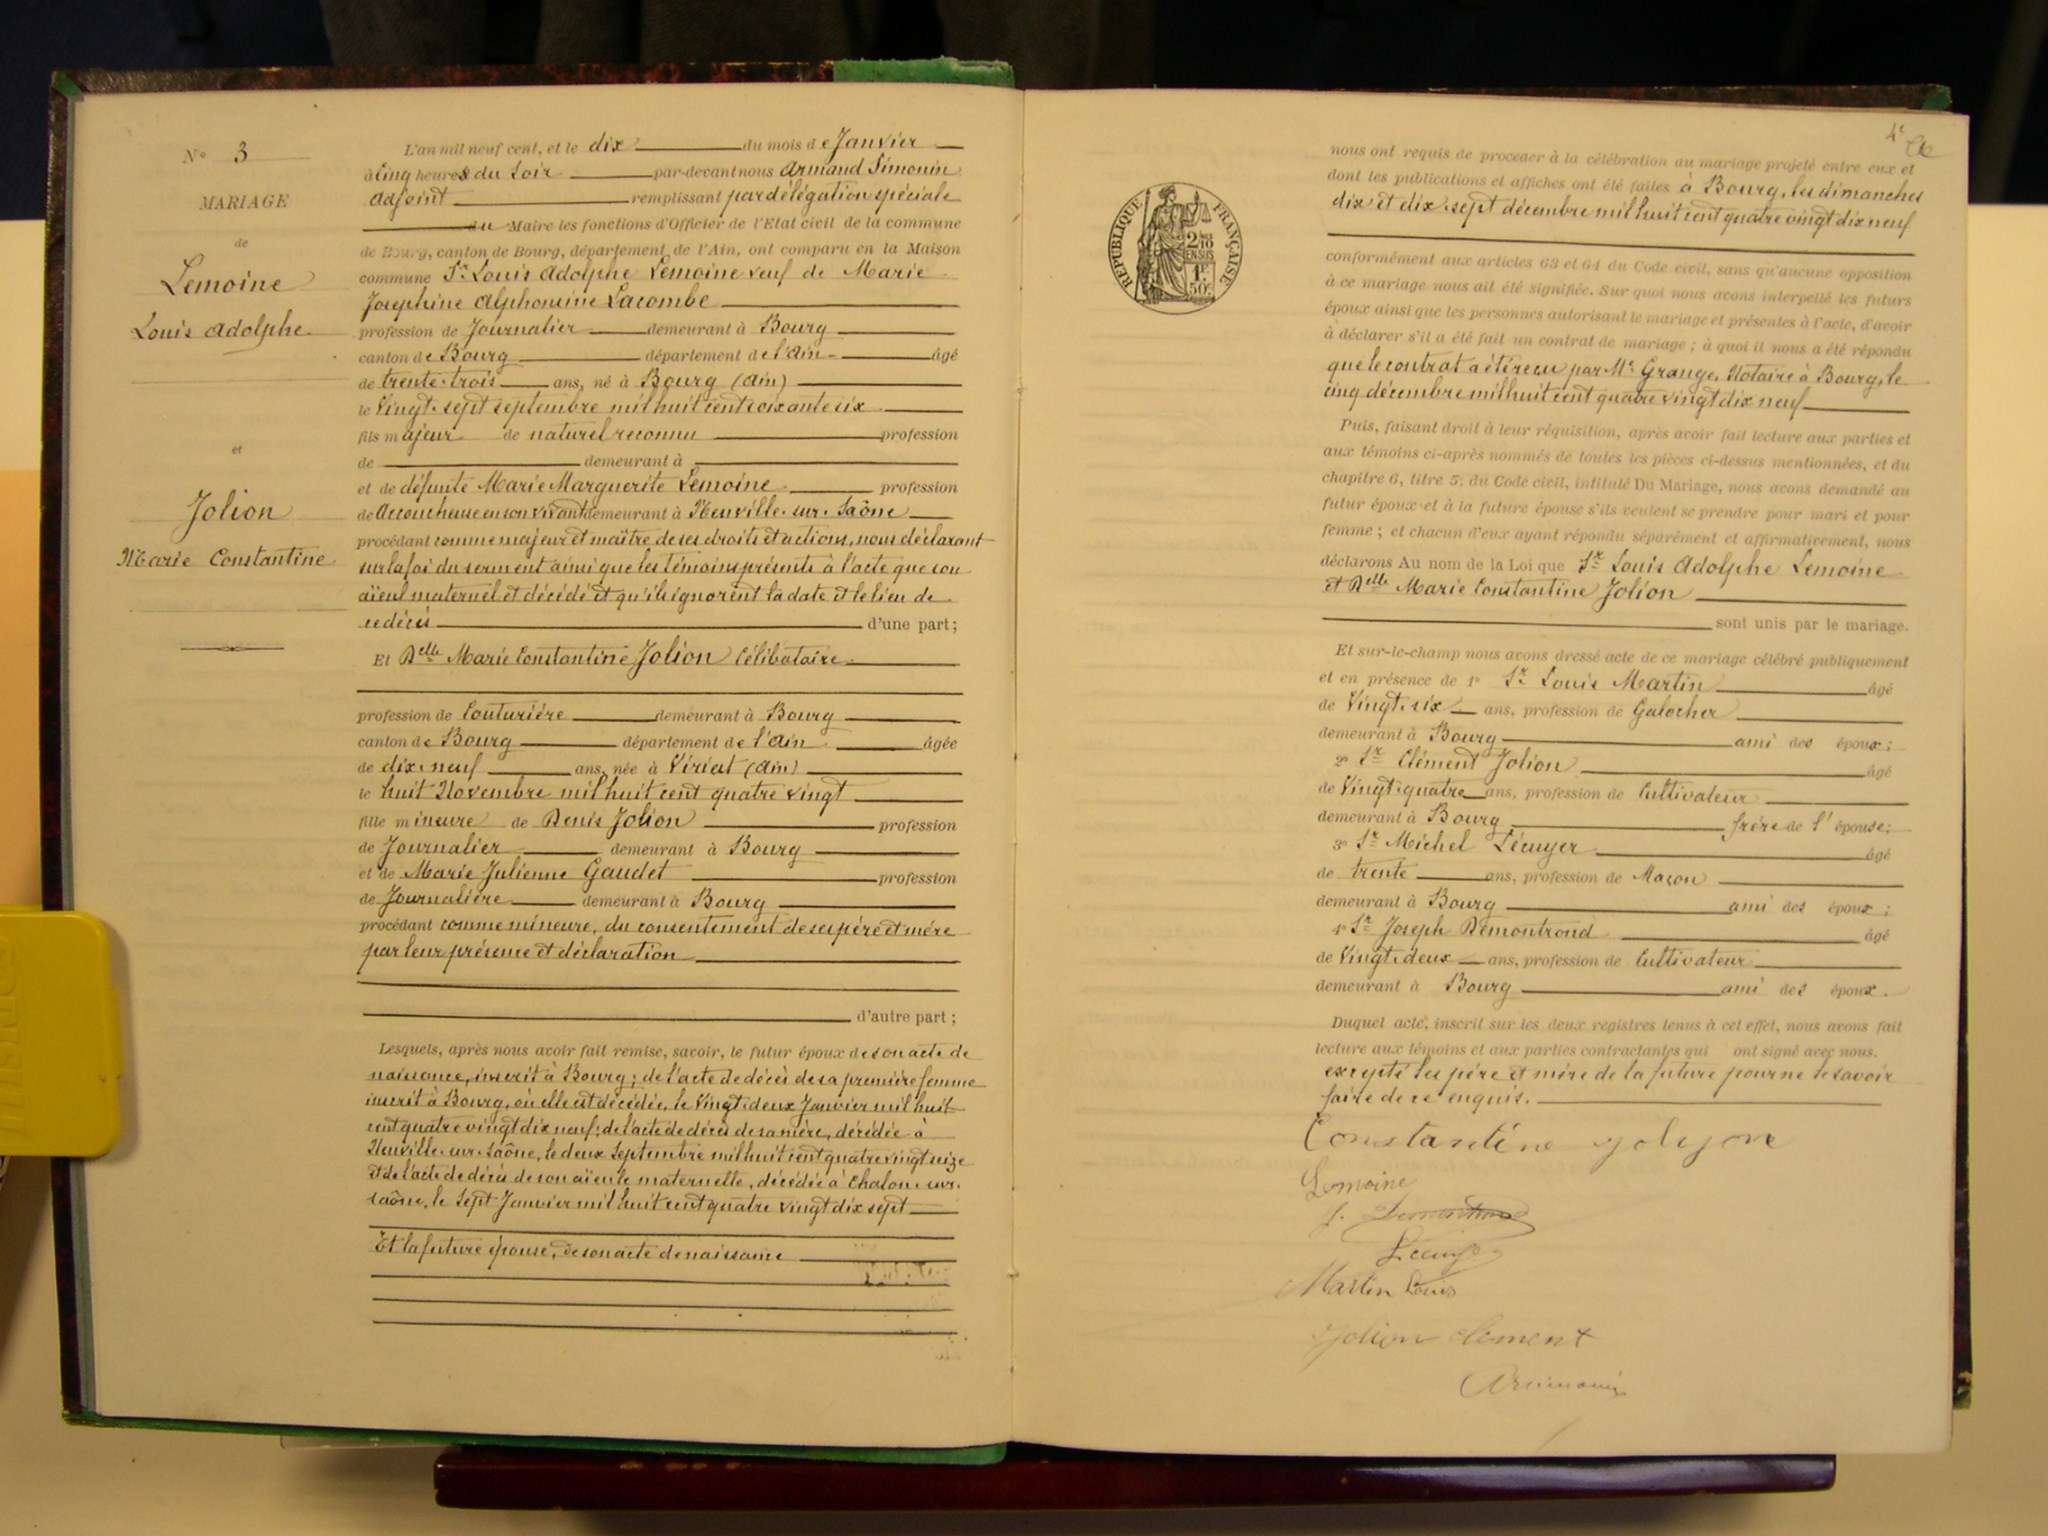 N° 3
MARIAGE
de
Lemoine
Louis Adolphe
et
Jolion
Marie Constantine
L'an mil neuf cent, et le dix du mois de Janvier
à Cinq heures du Soir par-devant nous Armand Simonin
Adjoint remplissant par délégation spéciale
du Maire les fonctions d'Officier de l'Etat civil de la commune
de Bourg, canton de Bourg, département de l'Ain, ont comparu en la Maison
commune Sr Louis Adolphe Lemoine veuf de Marie
Josephine Alphonsine Lacombe
profession de Journalier demeurant à Bourg
canton de Bourg département de l'Ain âgé
de trente-trois ans, né à Bourg (Ain)
le Vingt-sept septembre mil huit cent soixante six
fils majeur de naturel reconnu profession
de demeurant à
et de défunte Marie Marguerite Lemoine profession
de Accoucheuse en son vivant demeurant à Neuville-sur-Saône
procédant comme majeur et maître de ses droits et actions, nous déclarant
sur la foi du serment ainsi que les témoins présents à l'acte que son
aïeul maternel est décédé et qu'ils ignorent la date et le lieu de
ce décès d'une part;
Et Delle Marie Constantine Jolion Célibataire
profession de Couturière demeurant à Bourg
canton de Bourg département de l'Ain âgée
de dix-neuf ans, née à Viriat (Ain)
le huit Novembre mil huit cent quatre vingt
fille mineure de Denis Jolion profession
de Journalier demeurant à Bourg
et de Marie Julienne Gaudet profession
de Journalière demeurant à Bourg
procédant comme mineure, du consentement de ses père et mère
par leur présence et déclaration
d'autre part;
Lesquels, après nous avoir fait remise, savoir, le futur époux de son acte de
naissance, inscrit à Bourg; de l'acte de décès de sa première femme
inscrit à Bourg, où elle est décédée, le Vingt-deux Janvier mil huit
cent quatre vingt dix neuf; de l'acte de décès de sa mère, décédée à
Neuville-sur-Saône, le deux Septembre mil huit cent quatre vingt seize
et de l'acte de décès de son aïeule maternelle, décédée à Chalon-sur-
Saône, le Sept Janvier mil huit cent quatre vingt dix sept
Et la future épouse, de son acte de naissance
4e
REPUBLIQUE FRANÇAISE
2/10
EN SUS
1F
50c
nous ont requis de procéder à la célébration du mariage projeté entre eux et
dont les publications et affiches ont été faites à Bourg, les dimanches
dix et dix-sept décembre mil huit cent quatre vingt dix neuf
conformément aux articles 63 et 64 du Code civil, sans qu'aucune opposition
à ce mariage nous ait été signifiée. Sur quoi nous avons interpellé les futurs
époux ainsi que les personnes autorisant le mariage et présentes à l'acte, d'avoir
à déclarer s'il a été fait un contrat de mariage; à quoi il nous a été répondu
que le contrat a été reçu par Me Grange, Notaire à Bourg, le
cinq décembre mil huit cent quatre vingt dix neuf
Puis, faisant droit à leur réquisition, après avoir fait lecture aux parties et
aux témoins ci-après nommés de toutes les pièces ci-dessus mentionnées, et du
chapitre 6, titre 5, du Code civil, intitulé Du Mariage, nous avons demandé au
futur époux et à la future épouse s'ils veulent se prendre pour mari et pour
femme; et chacun d'eux ayant répondu séparément et affirmativement, nous
déclarons Au nom de la Loi que Sr Louis Adolphe Lemoine
et Delle Marie Constantine Jolion
sont unis par le mariage.
Et sur-le-champ nous avons dressé acte de ce mariage célébré publiquement
et en présence de 1° Sr Louis Martin âgé
de Vingt-six ans, profession de Galocher
demeurant à Bourg ami des époux;
2° Sr Clément Jolion âgé
de Vingt-quatre ans, profession de Cultivateur
demeurant à Bourg frère de l'épouse;
3° Sr Michel Lécuyer âgé
de trente ans, profession de Maçon
demeurant à Bourg ami des époux;
4° Sr Joseph Démontrond âgé
de Vingt-deux ans, profession de Cultivateur
demeurant à Bourg ami des époux.
Duquel acte, inscrit sur les deux registres tenus à cet effet, nous avons fait
lecture aux témoins et aux parties contractantes qui ont signé avec nous.
excepté les père et mère de la future pour ne le savoir
faire de ce enquis.
Constantine Jolyon
Lemoine
J. Demontrond
Lécuyer
Martin Louis
Jolion Clement
A Simonin